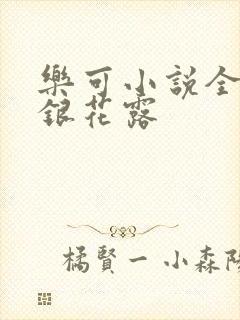 樂可小説全
銀花露
橘賢一 小森陽